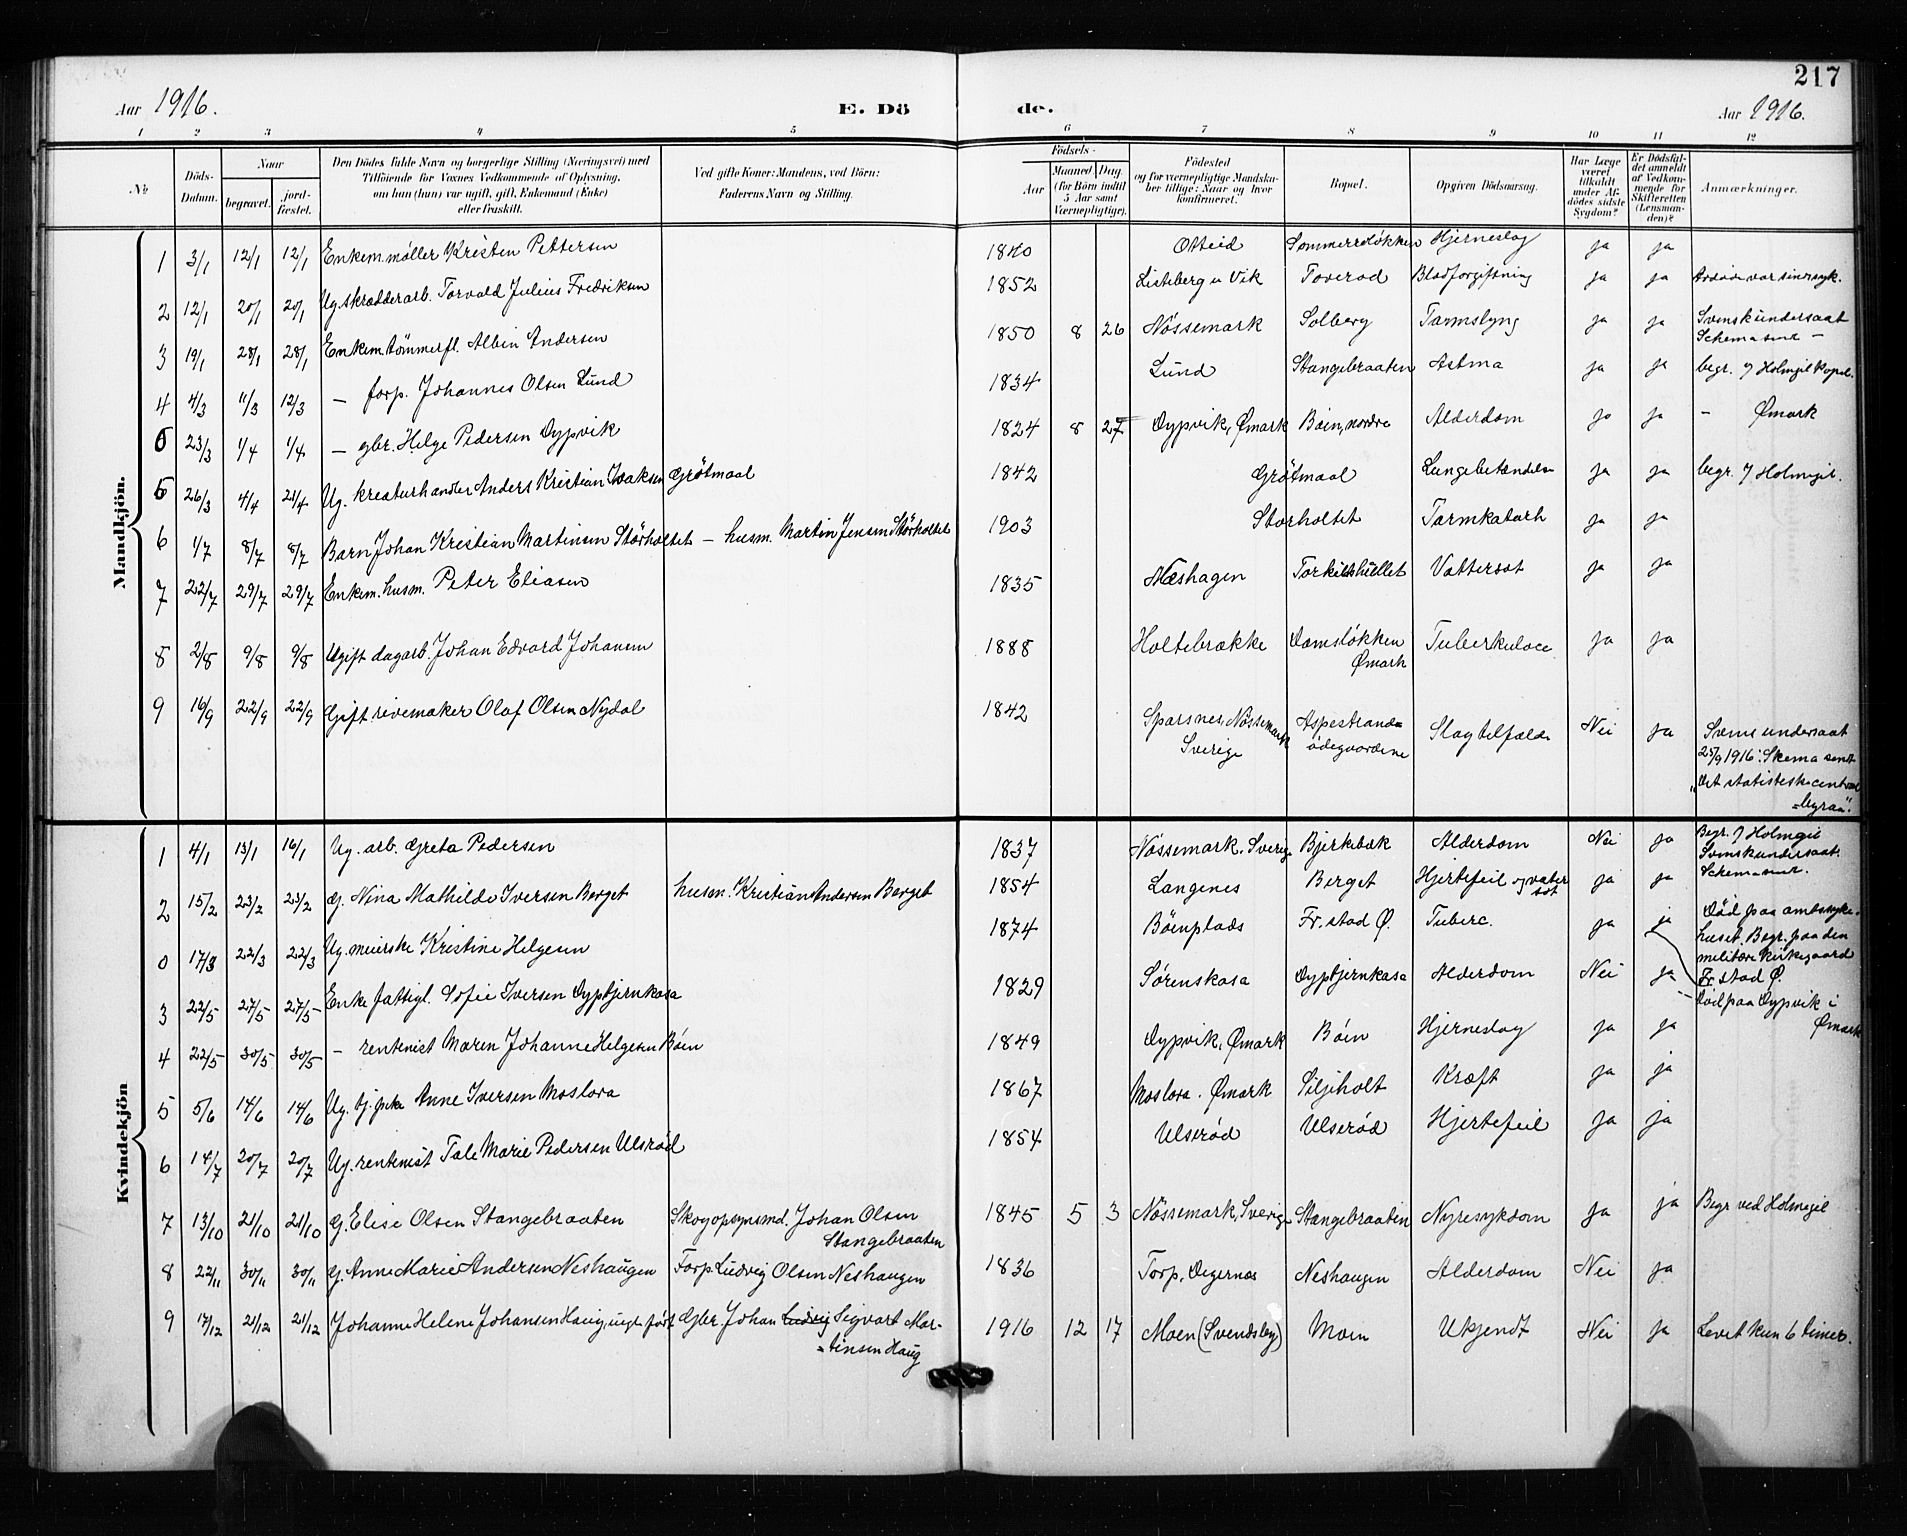 217
Aar 1916. E. Dö de. Aar 1916.
1 2 3 4 5 6 7 8 9 10 11 12
№ Döds-Datum. Naar begravet. jord-fæstet. Den Dödes fulde Navn og borgerlige Stilling (Næringsvei) med Tilföiende for Voxnes Vedkommende af Oplysning, om han (hun) var ugift, gift, Enkemand (Enke) eller fraskilt. Ved gifte Koner: Mandens, ved Börn: Faderens Navn og Stilling. Födsels- Aar Maaned. Dag. (for Börn indtil 5 Aar samt Værnepligtige). Födested og for værnepligtige Mandskaber tillige: Naar og hvor konfirmeret. Bopæl. Opgiven Dödsaarsag. Har Læge været tilkaldt under Afdödes sidste Sygdom? Er Dödsfaldet anmeldt af Vedkommende for Skifteretten (Lensmanden)? Anmærkninger.
Mandkjön.
1 3/1 12/1 12/1 Enkem. møller Kristen Pettersen 1840 Otteid Sommerroløkken Hjerneslag ja ja
2 12/1 20/1 20/1 Ug. skrædderarb. Torvald Julius Fredriksen 1852 Listeberg i Vik Toverød Blodforgiftning ja ja Avdøde var sinnsyk.
3 19/1 28/1 28/1 Enkem. tømmerfl. Albin Andersen 1850 8 26 Nössemark Solberg Tarmslyng ja ja Svensk undersaat Schema sendt –
4 4/3 11/3 12/3 — forp. Johannes Olsen Lund 1834 Lund Stangebraaten Astma ja ja begr. v/ Holmgil kapel.
5 23/3 1/4 1/4 — gbr. Helge Pedersen Dypvik 1824 8 27 Dypvik, Ømark Bøen, nordre Alderdom ja ja – Ømark
5 26/3 4/4 21/4 Ug. kreaturhandler Anders Kristian Isaksen Grötmaal 1842 Grötmaal Lungebetændelse ja ja begr. v/ Holmgil.
6 1/7 8/7 8/7 Barn Johan Kristian Martinsen Störholtet – husm. Martin Jensen Störholtet 1903 Storholtet Tarmkatarh ja ja
7 22/7 29/7 29/7 Enkem. husm. Peter Eliasen 1835 Næshagen Torkilshullet Vattersot ja ja
8 2/8 9/8 9/8 Ugift dagarb. Johan Edvard Johansen 1888 Holtebrække Damsløkken Ømark Tuberkulose ja ja
9 16/9 22/9 22/9 Gift rivemaker Olaf Olsen Nydal 1842 Sparsnes, Nössemark Sverige Aspestrand= ødegaardene Slagtilfælde Nei ja Svensk undersaat
25/9 1916: Skema sendt
"Det statistiske central
=byraa".
Kvindekjön
1 4/1 13/1 16/1 Ug. arb. Greta Pedersen 1837 Nössemark, Sverige Bjerkebæk Alderdom Nei ja Begr. v/ Holmgil Svensk undersaat. Schema sendt.
2 15/2 23/2 23/2 G. Nina Mathilde Iversen Berget husm. Kristian Andersen Berget 1854 Langenes Berget Hjertefeil og vatersot ja ja
0 17/3 22/3 22/3 Ug. meierske Kristine Helgesen 1874 Böenplads Fr. stad Ø. Tuberc. ja ja Död paa amtssyke-
huset. Begr. paa den
militære kirkegaard
Fr. stad Ø.
3 22/5 27/5 27/5 Enke fattigl. Sofie Iversen Dyptjernkasa 1829 Sørenskasa Dyptjernkasa Alderdom Nei ja
– Död paa Dypvik i Ømark
4 22/5 30/5 30/5 – rentenist Maren Johanne Helgesen Böen 1849 Dypvik, Ømark Böen Hjerneslag ja ja
5 5/6 14/6 14/6 Ug. tj. pike Anne Iversen Moslora 1867 Moslora, Ømark Siljiholt Kræft ja ja
6 14/7 20/7 20/7 Ug. rentenist Tale Marie Pedersen Ulsröd 1854 Ulseröd Ulseröd Hjertefeil ja ja
7 13/10 21/10 21/10 G. Elise Olsen Stangebraaten Skogopsynsmd. Johan Olsen Stangebraaten 1845 5 3 Nössemark, Sverige Stangebraaten Nyresykdom ja ja Begr. ved Holmgil
8 22/11 30/11 30/11 G. Anne Marie Andersen Neshaugen Forp. Ludvig Olsen Neshaugen 1836 Torp, Degernes Neshaugen Alderdom Nei ja
9 17/12 21/12 21/12 Johanne Helene Johansen Haug, ugt. født Gbr. Johan Ludvig Sigvart Mar-
=tinsen Haug 1916 12 17 Moen (Svendsby) Moen Ukjendt Nei ja Levet kun 6 timer.